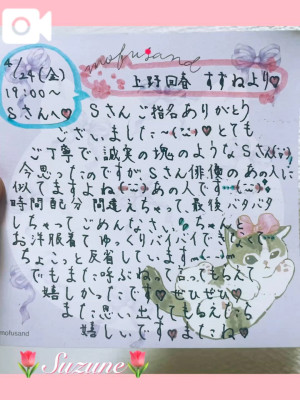 mofusand
4/24(金)
19:00〜
Sさんへ♥
上野回春 すずねより♥
Sさんご指名ありがとう
ございました〜(¨)♥とても
ご丁寧で、誠実の塊のようなSさん(¨)
今思ったのですが、Sさん俳優のあの人に
似てますよね(¨)あの人です…(¨)♥
時間配分 間違えちゃって、最後バタバタ
しちゃってごめんなさい。ちゃんと
お洋服着てゆっくりバイバイできなくて
ちょこっと反省しています
でもまた呼ぶねって言ってもらえて
嬉しかったです♥ぜひぜひ♥
また思い出してもらえたら
嬉しいです♥またね♥
mofusand
🌷Suzune🌷